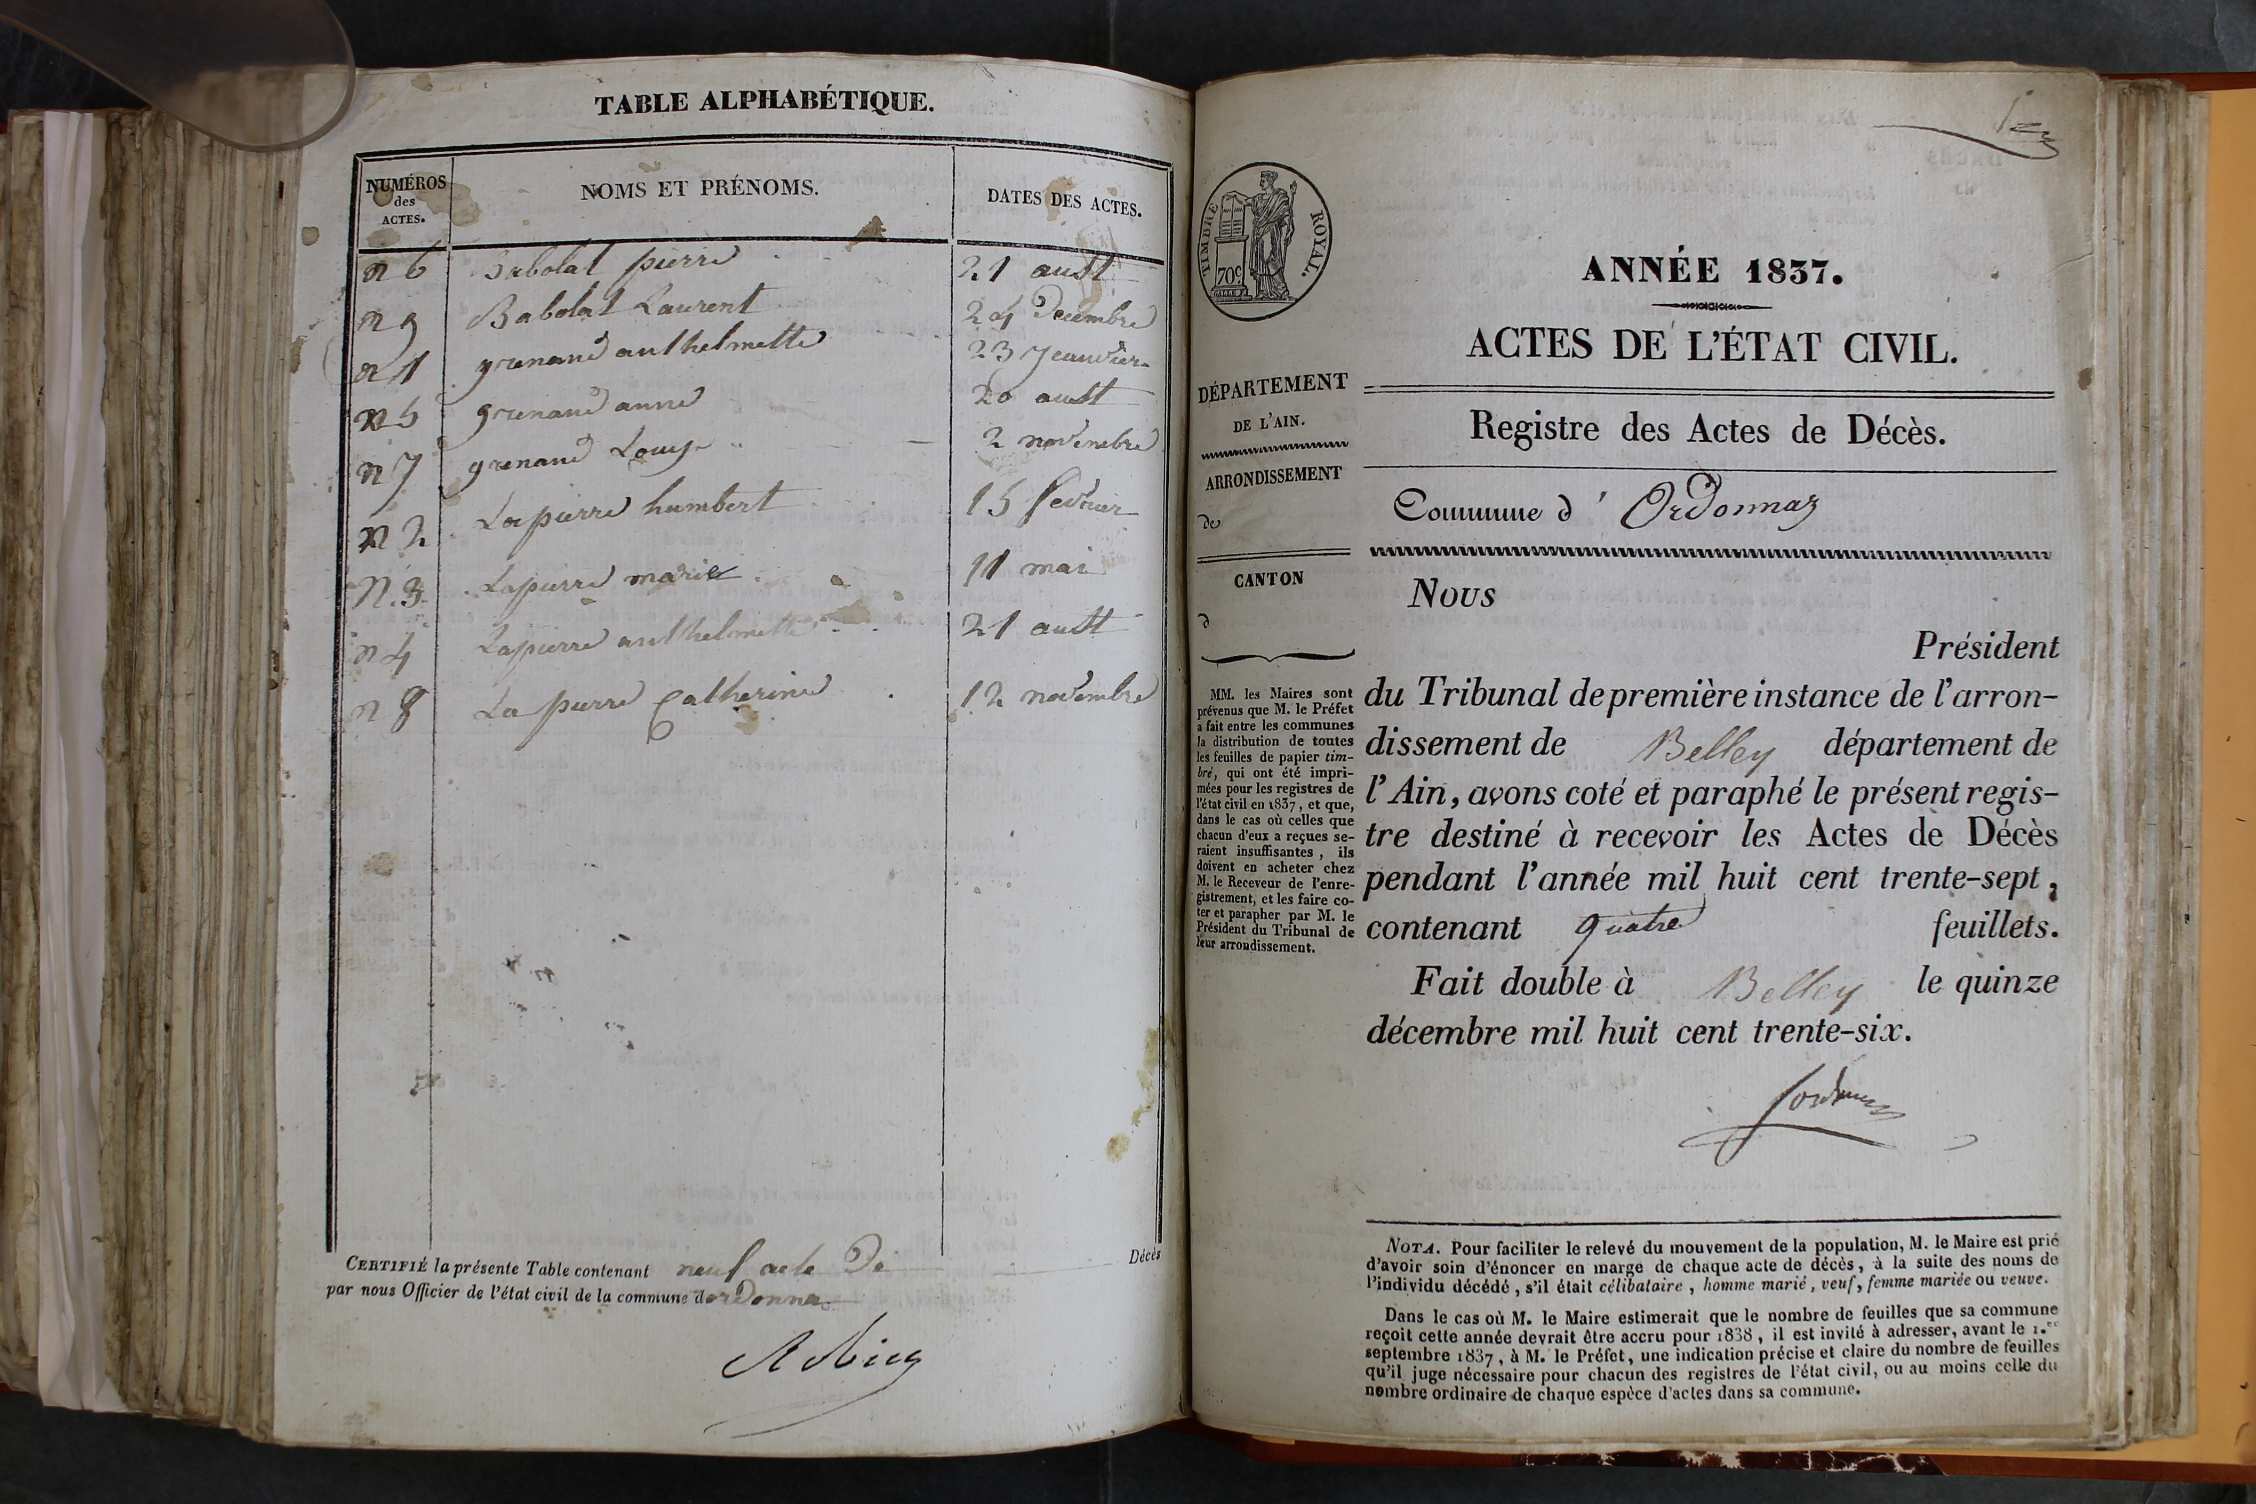 TABLE ALPHABÉTIQUE.
NUMÉROS
des
ACTES.
NOMS ET PRÉNOMS.
DATES DES ACTES.
n 6 pierre 21 aust
n 9 Babolat Laurent 24 Decembre
n 1 grenand anthelmette 23 Jeanvier
n 5 grenand anne 20 aust
n 7 grenand Louise 2 novembre
n 2 Lapierre humbert 15 fevrier
N. 3 Lapierre marie 11 mai
n 4 Lapierre anthelmette 21 aust
n 8 La pierre Catherine 12 novembre
CERTIFIÉ la présente Table contenant neuf acte De Décès
par nous Officier de l'état civil de la commune d'ordonnaz
TIMBRE ROYAL.
70c
ANNÉE 1837.
ACTES DE L'ÉTAT CIVIL.
DÉPARTEMENT
DE L'AIN.
ARRONDISSEMENT
de
CANTON
d
MM. les Maires sont
prévenus que M. le Préfet
a fait entre les communes
la distribution de toutes
les feuilles de papier tim-
bré, qui ont été impri-
mées pour les registres de
l'état civil en 1837, et que,
dans le cas où celles que
chacun d'eux a reçues se-
raient insuffisantes, ils
doivent en acheter chez
M. le Receveur de l'enre-
gistrement, et les faire co-
ter et parapher par M. le
Président du Tribunal de
leur arrondissement.
Registre des Actes de Décès.
Commune d'Ordonnaz
Nous
Président
du Tribunal de première instance de l'arron-
dissement de Belley département de
l'Ain, avons coté et paraphé le présent regis-
tre destiné à recevoir les Actes de Décès
pendant l'année mil huit cent trente-sept,
contenant quatre feuillets.
Fait double à Belley le quinze
décembre mil huit cent trente-six.
NOTA. Pour faciliter le relevé du mouvement de la population, M. le Maire est prié
d'avoir soin d'énoncer en marge de chaque acte de décès, à la suite des noms de
l'individu décédé, s'il était célibataire, homme marié, veuf, femme mariée ou veuve.
Dans le cas où M. le Maire estimerait que le nombre de feuilles que sa commune
reçoit cette année devrait être accru pour 1838, il est invité à adresser, avant le 1.er
septembre 1837, à M. le Préfet, une indication précise et claire du nombre de feuilles
qu'il juge nécessaire pour chacun des registres de l'état civil, ou au moins celle du
nombre ordinaire de chaque espèce d'actes dans sa commune.